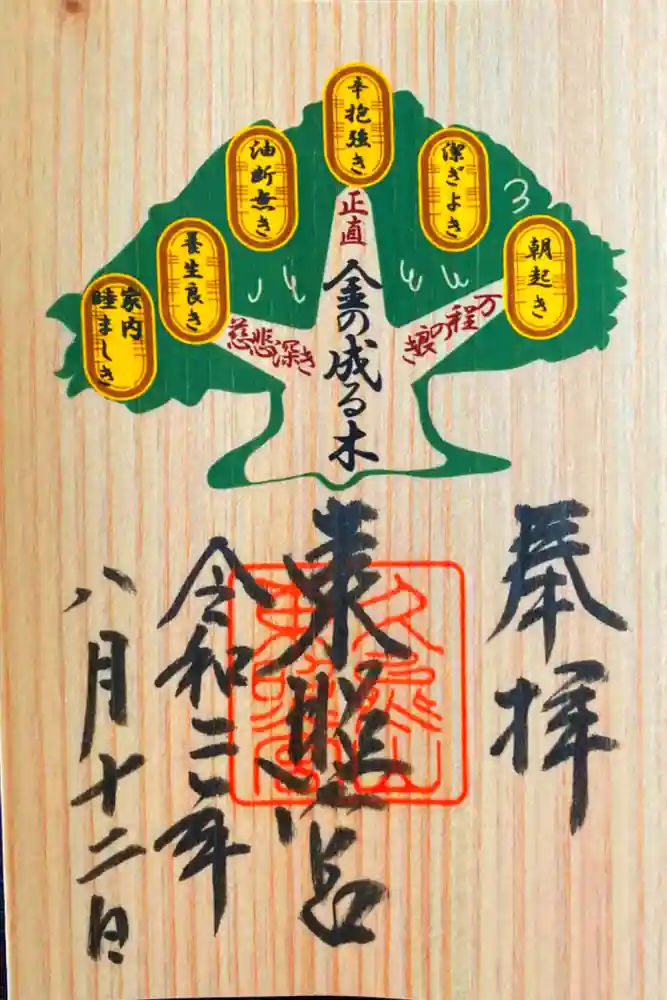 朝起き
潔ぎよき
辛抱強き
油断無き
養生良き
家内
睦ましき
万程の
正直
慈悲深き
金の成る木
奉拝
東照宮
久能山
東照宮
令和三年
八月十二日